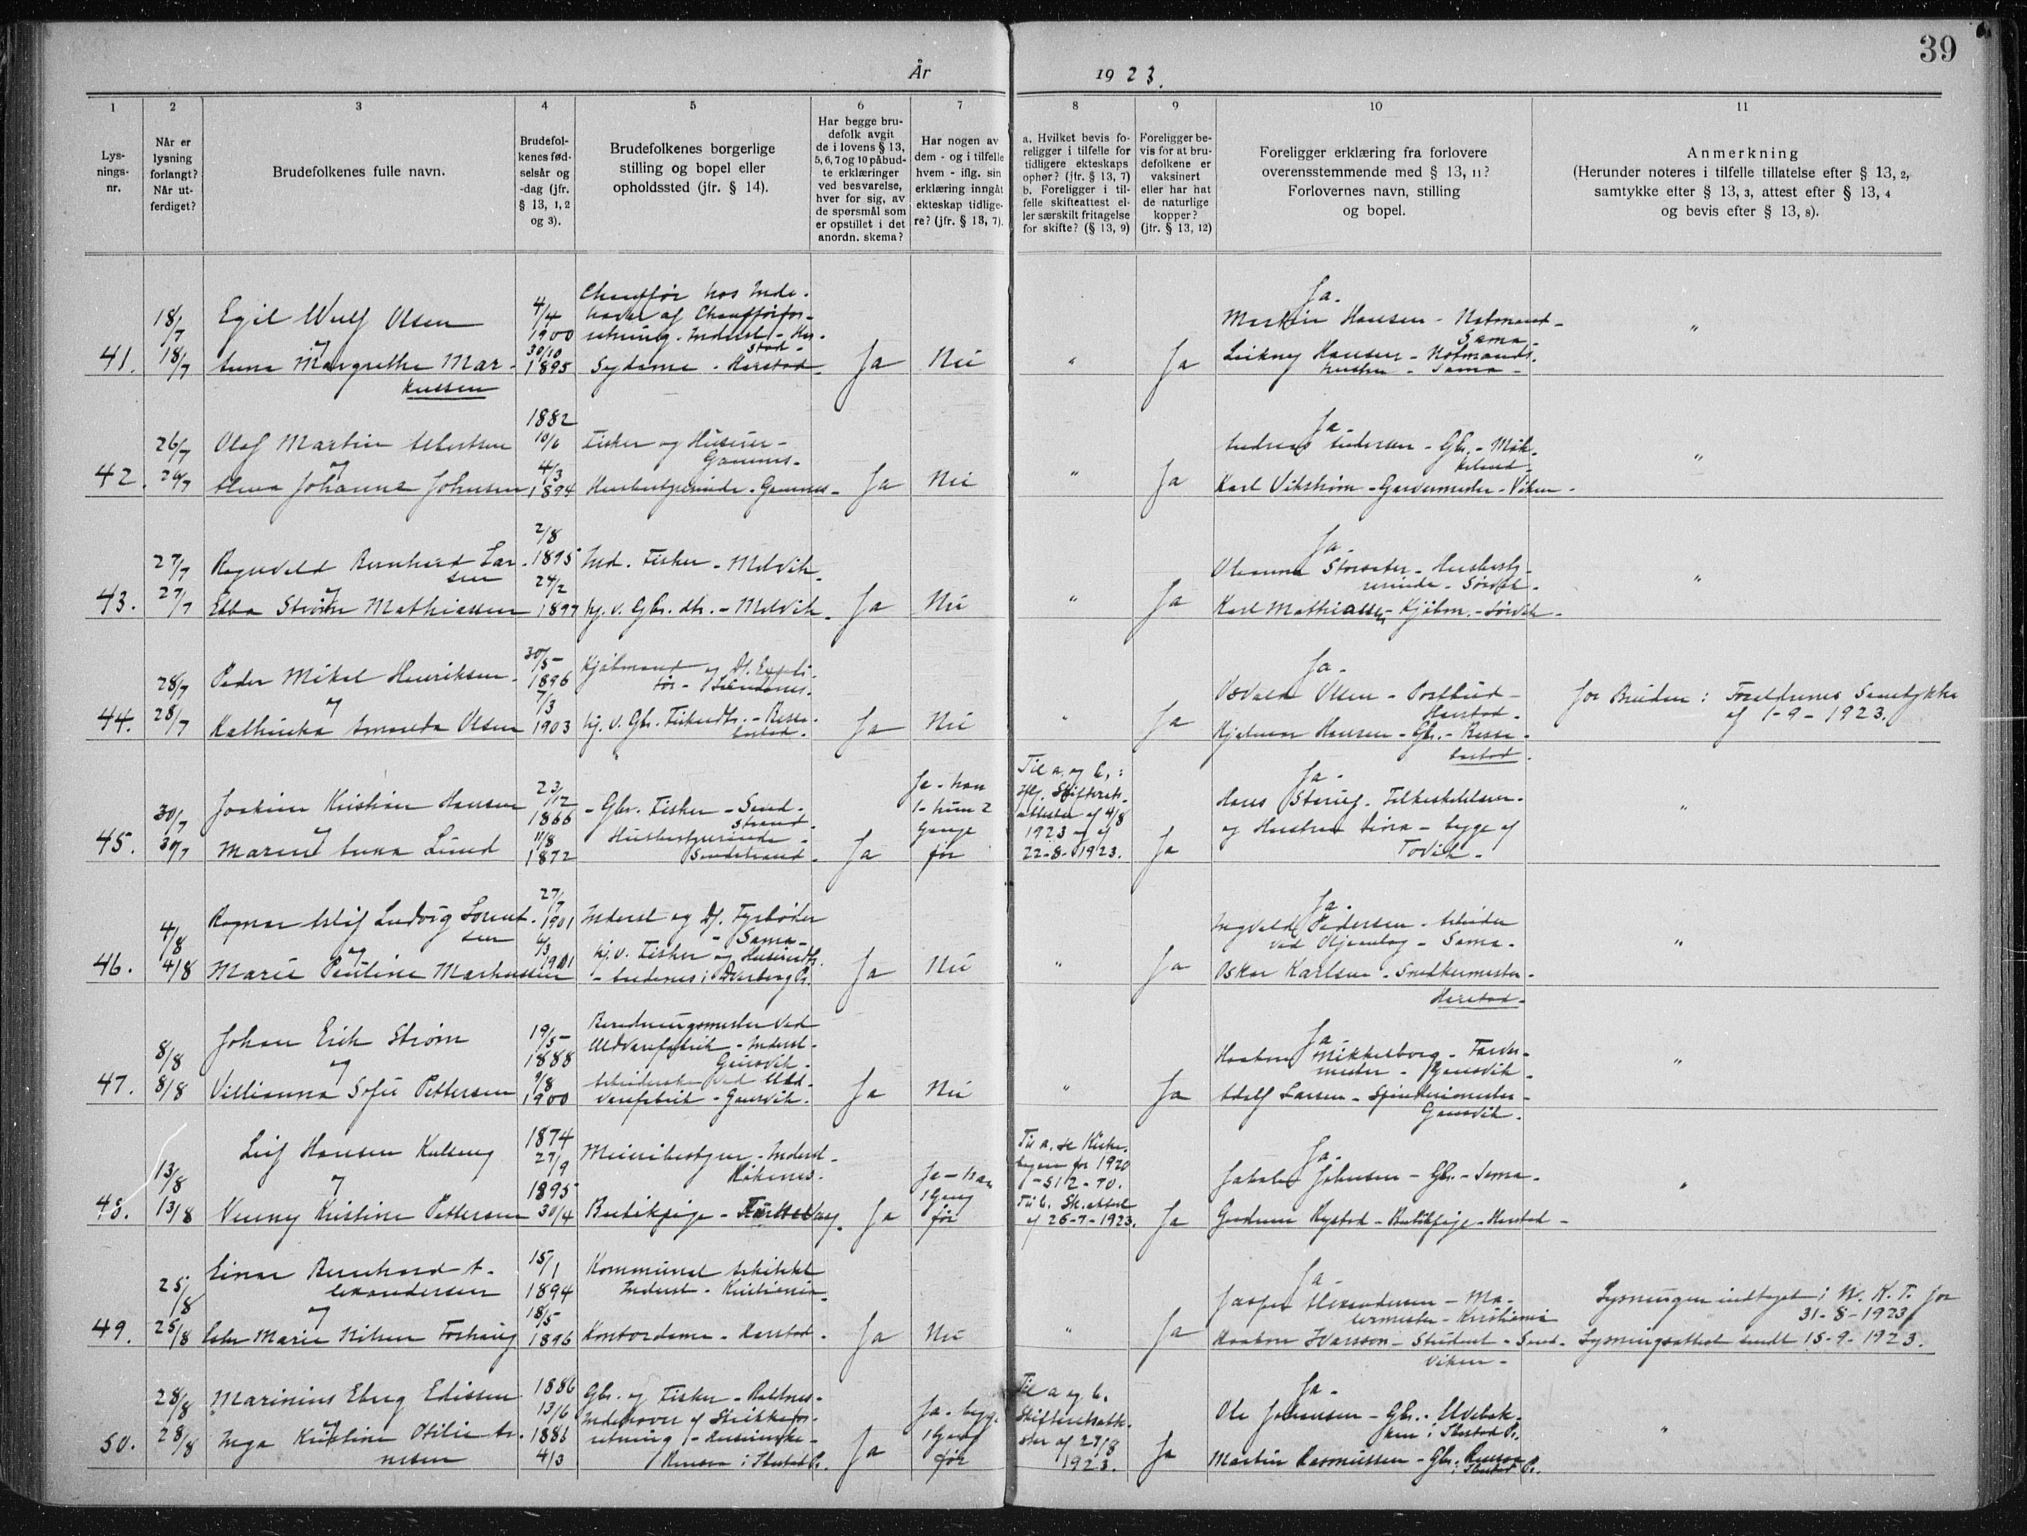 39
År 1923.
1 2 3 4 5 6 7 8 9 10 11
Lys-
nings-
nr.
Når er
lysning
forlangt?
Når ut-
ferdiget?
Brudefolkenes fulle navn.
Brudefol-
kenes fød-
selsår og
-dag (jfr.
§ 13, 1, 2
og 3).
Brudefolkenes borgerlige
stilling og bopel eller
opholdssted (jfr. § 14).
Har begge bru-
defolk avgit
de i lovens § 13,
5, 6, 7 og 10 påbud-
te erklæringer
ved besvarelse,
hver for sig, av
de spørsmål som
er opstillet i det
anordn. skema?
Har nogen av
dem - og i tilfelle
hvem - iflg. sin
erklæring inngått
ekteskap tidlige-
re? (jfr. § 13, 7).
a. Hvilket bevis fo-
religger i tilfelle for
tidligere ekteskaps
ophør? (jfr. § 13, 7)
b. Foreligger i til-
felle skifteattest el-
ler særskilt fritagelse
for skifte? (§ 13, 9)
Foreligger be-
vis for at bru-
defolkene er
vaksinert
eller har hat
de naturlige
kopper?
(jfr. § 13, 12)
Foreligger erklæring fra forlovere
overensstemmende med § 13, 11?
Forlovernes navn, stilling
og bopel.
Anmerkning
(Herunder noteres i tilfelle tillatelse efter § 13, 2,
samtykke efter § 13, 3, attest efter § 13, 4
og bevis efter § 13, 8).
41.
18/7
18/7
Egil Wulf Olsen
og
Anna Margrethe Mar-
kussen
4/4
1900
30/10
1895
Chauffør hos Inde-
haver af Chaufførfor-
retning. Inderst - Har-
stad -
Sydame - Harstad -
Ja
Nei
"
Ja
Ja -
Martin Hansen - Notmand -
Sama -
Leikny Hansen - Notmands-
hustru - Sama -
"
42.
26/7
26/7
Olaf Martin Albertsen
og
Johanne Johnsen
1882
10/6
4/3
1894
Fisker og Huseier -
Gamnes -
Husbestyrerinde - Gamnes -
Ja
Nei
"
Ja
Ja -
Andreas Andersen - Gbr. - Møk-
keland -
Karl Vikstrøm - Garvermester - Viken -
"
43.
27/7
27/7
Ragnvald Bernhard Lar-
sen
og
Ebba Strøm Mathiassen
2/8
1895
24/2
1897
Ind. Fisker - Melvik -
hj. v. Gbr. dtr. - Melvik -
Ja
Nei
"
Ja
Ja -
Oleanna Storsæter - Husbesty-
rerinde - Sørvik -
Karl Mathiassen - Kjøbm. - Sørvik -
"
44.
28/7
28/7
Peder Mikal Henriksen
og
Kathinka Amanda Olsen
30/5 -
1896
7/3
1903
Kjøbmand og Df. Expedi-
tør -
hj. v. Gbr. Fiskerdtr. - Resse-
Ja
Nei
"
Ja
Ja -
Osvald Olsen - Postbud -
Harstad -
Hjalmar Hansen - Gbr. - Resse-
for Bruden: Forældrenes Samtykke
af 1-9-1923.
45.
30/7
30/7
Joakim Kristian Hansen
og
Maren Anna Lund
23/12
1866
11/8
1872
- Gbr. Fisker - Sand-
strand -
Husbestyrerinde -
Sandstrand -
Ja
Ja - han
1 - hun 2
Gange
før
Til a. og b.:
Hlg. Skifterets-
attester af 4/8
1923 og af
22-8-1923.
Ja
Ja -
Hans
og Hustru - begge af
Tovik -
"
46.
4/8
4/8
Ragnar Ludvig Lorent-
sen
og
Marie Pauline Markussen
27/7
1901
4/3
1901
Inderst og Df. Fyrbøder
- Sama -
hj. v. Fisker og Huseierdtr.
- i Dverberg Pr.
Ja
Nei
"
Ja
Ja -
Ingvald Pedersen - Arbeider
ved - Sama -
Oskar Karlsen - Snedkermester -
Harstad -
"
47.
8/8
8/8
Johan Erik Strøm
og
Villianna Sofie Pettersen
19/5 -
1888
9/8
1900
Beredningsmester ved
Uldvarefabrik - Inderst -
Gansvik -
Arbeiderske ved Uld-
varefabrik - Gansvik -
Ja
Nei
"
Ja
Ja -
Haakon Mikkelborg - Farver-
mester - Gansvik -
Adolf Larsen - Spinnerimester -
Gansvik -
"
48.
13/8
13/8
Leif Hansen Kulseng
og
Venny Kristine Pettersen
1874
27/9
1895
30/4
Meieribestyrer - Inderst -
Røkenes -
Butikpige -
Ja
Ja - han
1 Gang
før
Til a. se Kirke-
bogen for 1920
- 512 - 70.
Til b. Sk. attest
af 26-7-1923.
Ja
Ja -
Jakob Johnsen - Gbr. - Sama -
Gudrun Rystad - Butikpige - Harstad -
"
49.
25/8
25/8
Einar Bernhard A-
lexandersen
og
Marie Nilsen Forhaug
15/1
1894
18/5 -
1896
Kommunal Arkitekt
Inderst - Kristiania -
Kontordame - Harstad -
Ja
Nei
"
Ja
Ja -
Jasper Alexandersen - Ma-
lermester - Kristiania
Haakon Ivarsson - Student - Sand-
viken -
Lysningen indtaget i N. K. T. for
31-8-1923.
Lysningsattest sendt 15-9-1923.
50.
28/8
28/8
Marinius Eberg Edissen
og
Inga Kristine Otilie Ar-
nesen
1886
13/6
1886
4/3
Gbr. og Fisker -
Indehaver af Strikkefor-
retning -
i Ibestad Pr.
Ja
Ja - begge
1 Gang
før
Til a og b.
Skifteretsatte-
ster af 27/8
1923.
Ja
Ja -
Ole Johansen - Gbr. -
i Ibestad Pr.
Martin Rasmussen - Gbr.
i Ibestad Pr.
"